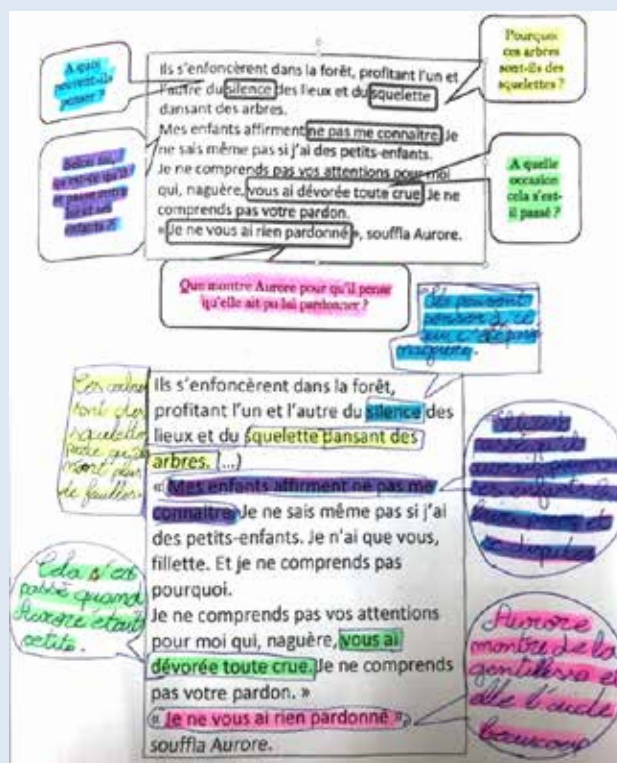 A quoi
peuvent-ils
penser ?
Ils s'enfoncèrent dans la forêt, profitant l'un et
l'autre du silence des lieux et du squelette
dansant des arbres.
Mes enfants affirment ne pas me connaître. Je
ne sais même pas si j'ai des petits-enfants.
Je ne comprends pas vos attentions pour moi
qui, naguère, vous ai dévorée toute crue. Je ne
comprends pas votre pardon.
« Je ne vous ai rien pardonné », souffla Aurore.
Pourquoi
ces arbres
sont-ils des
squelettes ?
Selon toi,
qu'est-ce qu'il
se passe entre
lui et ses
enfants ?
A quelle
occasion
cela s'est-
il passé ?
Que montre Aurore pour qu'il pense
qu'elle ait pu lui pardonner ?
Ils peuvent
penser à ce
qui c'
naguère.
Ces arbres
sont des
squelettes
parce qu'ils
n'ont plus
de feuilles.
Ils s'enfoncèrent dans la forêt,
profitant l'un et l'autre du silence des
lieux et du squelette dansant des
arbres. (...)
« Mes enfants affirment ne pas me
connaître. Je ne sais même pas si j'ai
des petits-enfants. Je n'ai que vous,
fillette. Et je ne comprends pas
pourquoi.
Je ne comprends pas vos attentions
pour moi qui, naguère, vous ai
dévorée toute crue. Je ne comprends
pas votre pardon. »
« Je ne vous ai rien pardonné »,
souffla Aurore.
Cela s'est
passé quand
Aurore était
petite.
Aurore
montre de la
gentillesse et
elle l'aide
beaucoup